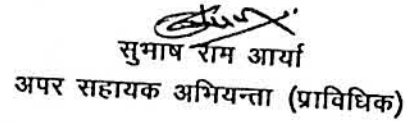 सुभाष राम आर्या
अपर सहायक अभियन्ता (प्राविधिक)